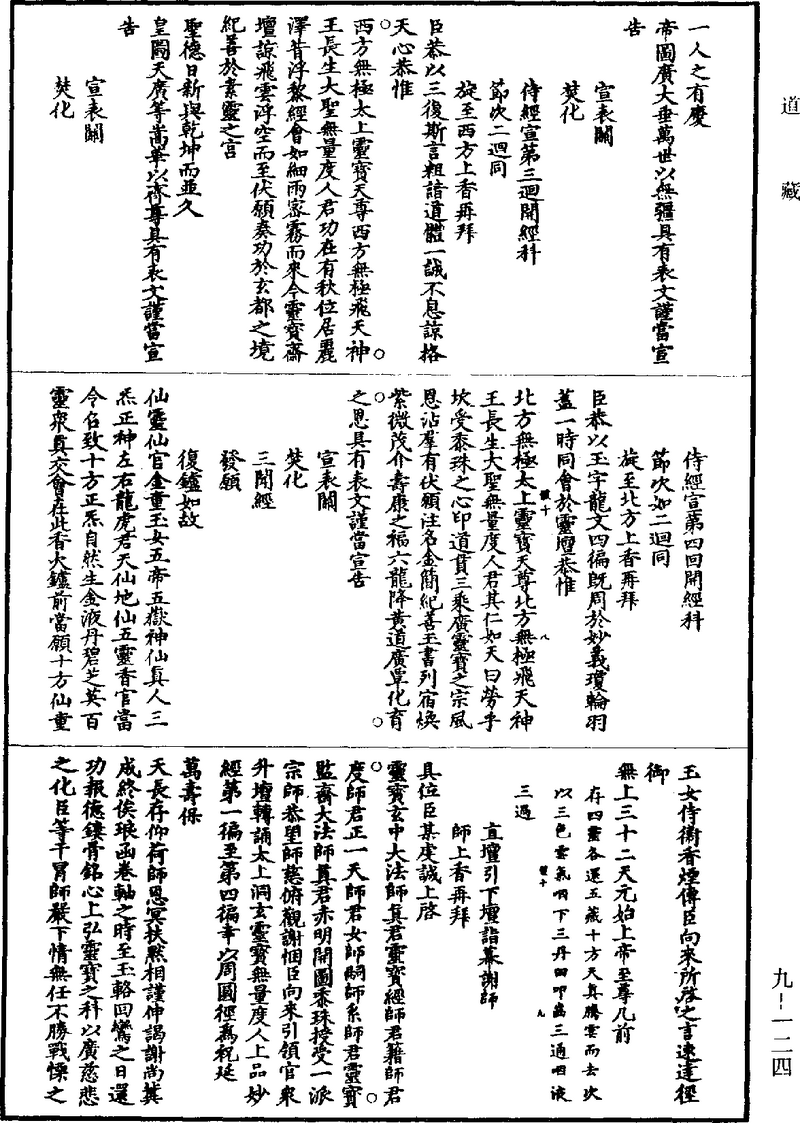 道藏
一人之有慶
帝圖廣大垂萬世以無疆具有表文謹當宣
告
宣表關
焚化
侍經宣第三迴開經科
節次二迴同
旋至西方上香再拜
臣恭以三復斯言粗諳道體一誠不息諒格
天心恭惟
西方無極太上靈寶天尊西方無極飛天神
王長生大聖無量度人君功在有秋位居麗
澤昔浮黎經會如細雨密霧而來今靈寶齋
壇諒飛雲浮空而至伏願奏功於玄都之境
紀善於素靈之宮
聖德日新與乾坤而並久
皇圖天廣等嵩華以齊尊具有表文謹當宣
告
宣表關
焚化
侍經宣第四回開經科
節次如二迴同
旋至北方上香再拜
臣恭以玉字龍文四徧既周於妙義瓊輪羽
蓋一時同會於靈壇恭惟
北方無極太上靈寶天尊北方無極飛天神
王長生大聖無量度人君其仁如天曰勞乎
坎受黍珠之心印道貫三乘廣靈寶之宗風
恩沾羣有伏願注名金簡紀善玉書列宿煥
紫微茂介壽康之福六龍降黃道廣覃化育
之恩具有表文謹當宣告
宣表關
焚化
三聞經
發願
復鑪如故
仙靈仙官金童玉女五帝五嶽神仙真人三
炁正神左右龍虎君天仙地仙五靈香官當
令召致十方正炁自然生金液丹碧芝英百
靈衆真交會在此香火鑪前當願十方仙童
玉女侍衛香煙傳臣向來所啓之言速達徑
御
無上三十二天元始上帝至尊几前
存四靈各還五藏十方天真騰雲而去次
以三色雲氣咽下三丹田叩齒三通咽液
三過
直壇引下壇詣幕謝師
師上香再拜
具位臣某虔誠上啓
靈寶玄中大法師真君靈寶經師君籍師君
度師君正一天師君女師嗣師系師君靈寶
監齋大法師真君赤明開圖黍珠授受一派
宗師恭望師慈俯觀謝悃臣向來引領官衆
升壇轉誦太上洞玄靈寶無量度人上品妙
經第一徧至第四徧幸以周圓徑爲祝延
萬壽保
天長存仰荷師恩冥扶黙相謹伸謁謝尚冀
成終俟琅函卷軸之時至玉輅回鸞之日還
功報德鏤骨銘心上弘靈寶之科以廣慈悲
之化臣等干冒師嚴下情無任不勝戰慄之
九-一二四